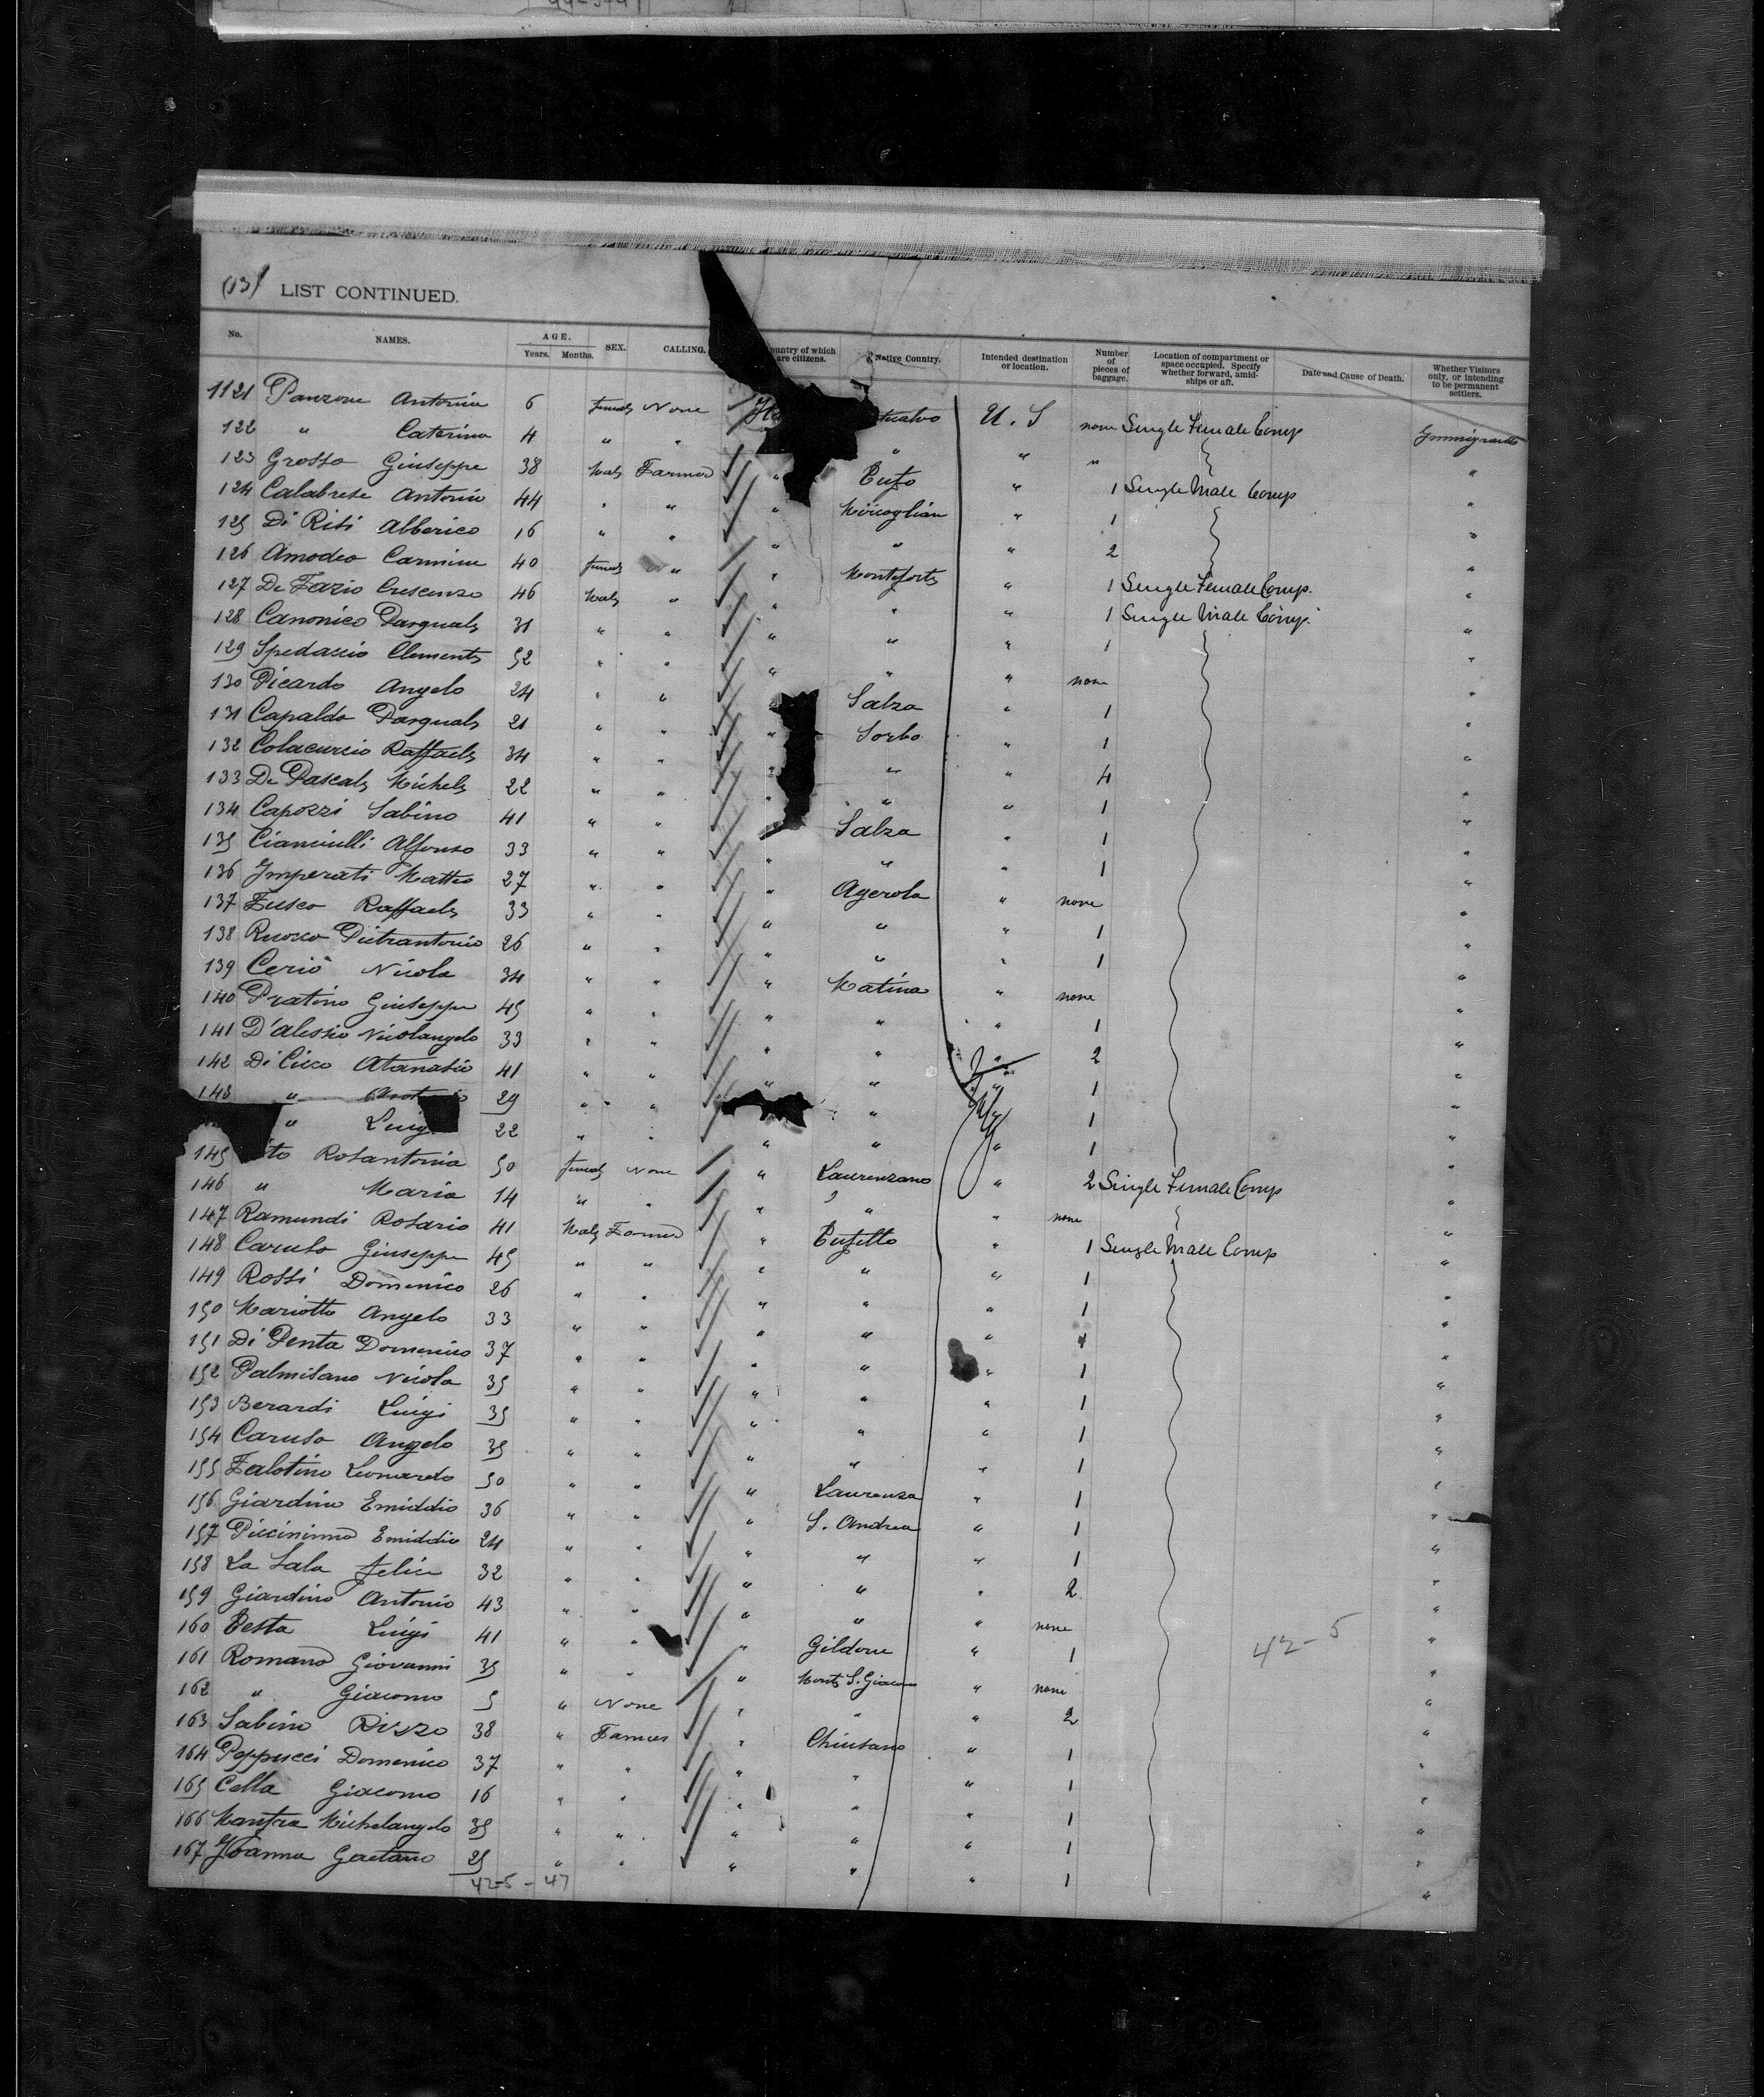 (13) LIST CONTINUED.
No. NAMES. AGE. Years. Months. SEX. CALLING. Country of which are citizens. Native Country. Intended destination or location. Number of pieces of baggage. Location of compartment or space occupied. Specify whether forward, amidships or aft. Date and Cause of Death. Whether Visitors only, or intending to be permanent settlers.
1121 Panzone Antonia 6 female None U.S none Single Female Comp Immigrants
122 " Caterina 4 " " " " " "
123 Grosso Giuseppe 38 Male Farmer " Tufo " 1 Single Male Comp "
124 Calabrese Antonio 44 " " " " 1 "
125 Di Risi Alberico 16 " " " " " 2 "
126 Amodeo Carmine 40 female " " Monteforte " 1 Single Female Comp. "
127 De Fazio Crescenzo 46 Male " " " " 1 Single Male Comp. "
128 Canonico Pasquale 31 " " " " " 1 "
129 Spedaccio Clemente 52 " " " " " none "
130 Picardo Angelo 24 " " " Salza " 1 "
131 Capaldo Pasquale 21 " " " Sorbo " 1 "
132 Colacurcio Raffaele 34 " " " " " 4 "
133 De Pascale Michele 22 " " " " " 1 "
134 Capozzi Sabino 41 " " Salza " 1 "
135 Cianciulli Alfonso 33 " " " " " 1 "
136 Imperati Matteo 27 " " " Agerola " none "
137 Fusco Raffaele 33 " " " " " 1 "
138 Ruocco Pietrantonio 26 " " " " " 1 "
139 Cerio Nicola 34 " " " Matina " none "
140 Pratino Giuseppe 45 " " " " " 1 "
141 D'Alessio Nicolangelo 33 " " " " " 2 "
142 Di Cicco Atanasio 41 " " " " " 1 "
143 " 29 " " " " 1 "
" Luigi 22 " " " " " 1 "
145 Rosantonia 50 female None " Laurenzano " 2 Single Female Comp "
146 " Maria 14 " " " " " none "
147 Ramundi Rosario 41 Male Farmer " Tufillo " 1 Single Male Comp "
148 Caruso Giuseppe 45 " " " " " 1 "
149 Rossi Domenico 26 " " " " " 1 "
150 Mariotto Angelo 33 " " " " " 4 "
151 Di Penta Domenico 37 " " " " " 1 "
152 Palmisano Nicola 35 " " " " " 1 "
153 Berardi Luigi 35 " " " " " 1 "
154 Caruso Angelo 35 " " " " " 1 "
155 Falotino Leonardo 50 " " " Laurenza " 1 "
156 Giardino Emiddio 36 " " " S. Andrea " 1 "
157 Piccininno Emiddio 24 " " " " " 1 "
158 La Sala Felice 32 " " " " " 2 "
159 Giardino Antonio 43 " " " " " none "
160 Testa Luigi 41 " " " Gildone " 1 "
161 Romano Giovanni 35 " " " Monte S. Giacomo " none "
162 " Giacomo 5 " None " " " 2 "
163 Sabino Rizzo 38 " Farmer " Chiusano " 1 "
164 Poppucci Domenico 37 " " " " " 1 "
165 Cella Giacomo 16 " " " " " 1 "
166 Michelangelo 35 " " " " " 1 "
167 Ioanna Gaetano 25 " " " " " 1 "
42-5
42-5-47